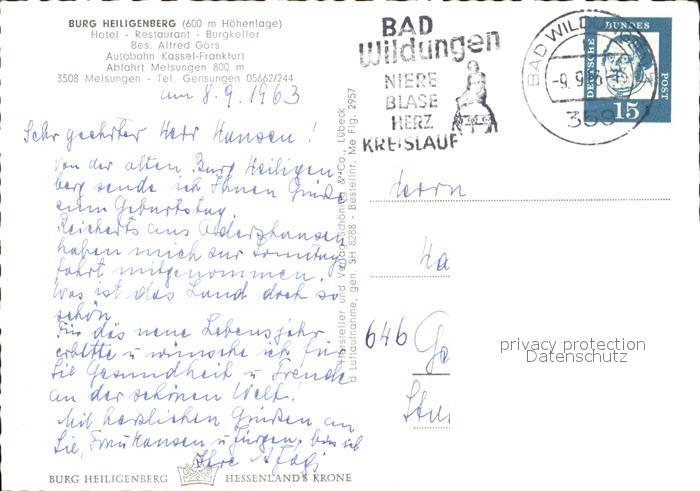 BURG HEILIGENBERG (600 m Höhenlage)
Hotel - Restaurant - Burgkeller
Bes. Alfred Görs
Autobahn Kassel-Frankfurt
Abfahrt Melsungen 800 m
3508 Melsungen - Tel. Gensungen 05662/244
am 8.9.1963
Sehr geehrter Herr Hansen!
Von der alten Burg Heiligen
berg sende ich Ihnen Grüße
zum Geburtstag.
Reicherts aus
haben mich zur Sonntag
fahrt mitgenommen.
Was ist das Land doch so
schön.
Für das neue Lebensjahr
erbitte u wünsche ich für
Sie Gesundheit u Freude
an der schönen Welt!
Mit herzlichen Grüßen an
Sie, Frau Hansen u Jürgen, bin ich
Ihre
BURG HEILIGENBERG HESSENLAND'S KRONE
Hersteller und Verlag Schöning & Co., Lübeck
Luftaufnahme, gen. SH 8288 - Bestellnr. Me Flg. 2957
BAD
Wildungen
NIERE
BLASE
HERZ
KREISLAUF
BAD WILDUNGEN
-9. 9.63
359
DEUTSCHE BUNDES POST
15
Herrn
Ha
646 Ge
privacy protection
Datenschutz